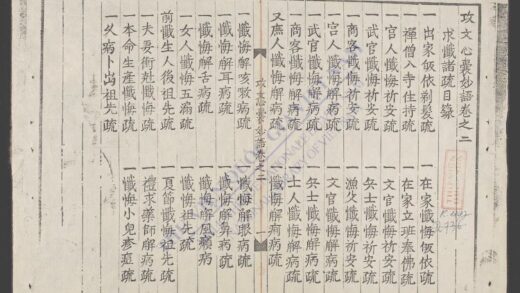 攻文心囊妙語卷之二
求懺諸疏目錄
一出家皈依剃髮疏 一在家懺悔皈依疏
一禪僧入寺住持疏 一在家立班奉佛疏
一官人懺悔祈安疏 一文官懺悔祈安疏
一武官懺悔祈安疏 一兵士懺悔祈安疏
一商客懺悔祈安疏 一漁父懺悔祈安疏
一宫人懺悔解病疏 一文官懺悔解病疏
一武官懺悔解病疏 一兵士懺悔解病疏
一商客懺悔解病疏 一士人懺悔解病疏
又庶人懺悔解病疏 懺悔解病疏
攻文心囊妙語卷之二 一
一懺悔解咳嗽病疏 一懺悔解眼病疏
一懺悔解耳病疏 一懺悔解鼻病疏
一懺悔解舌病疏 懺悔解風癲病
一女人懺悔五漏疏 懺悔祖先疏
前懺生人後祖先疏 一夏節懺悔祖先疏
一夫妻術尅懺悔疏 一禮求藥師解病疏
一本命生產懺悔疏 一懺悔小兒疹痘疏
一久病卜出祖先疏